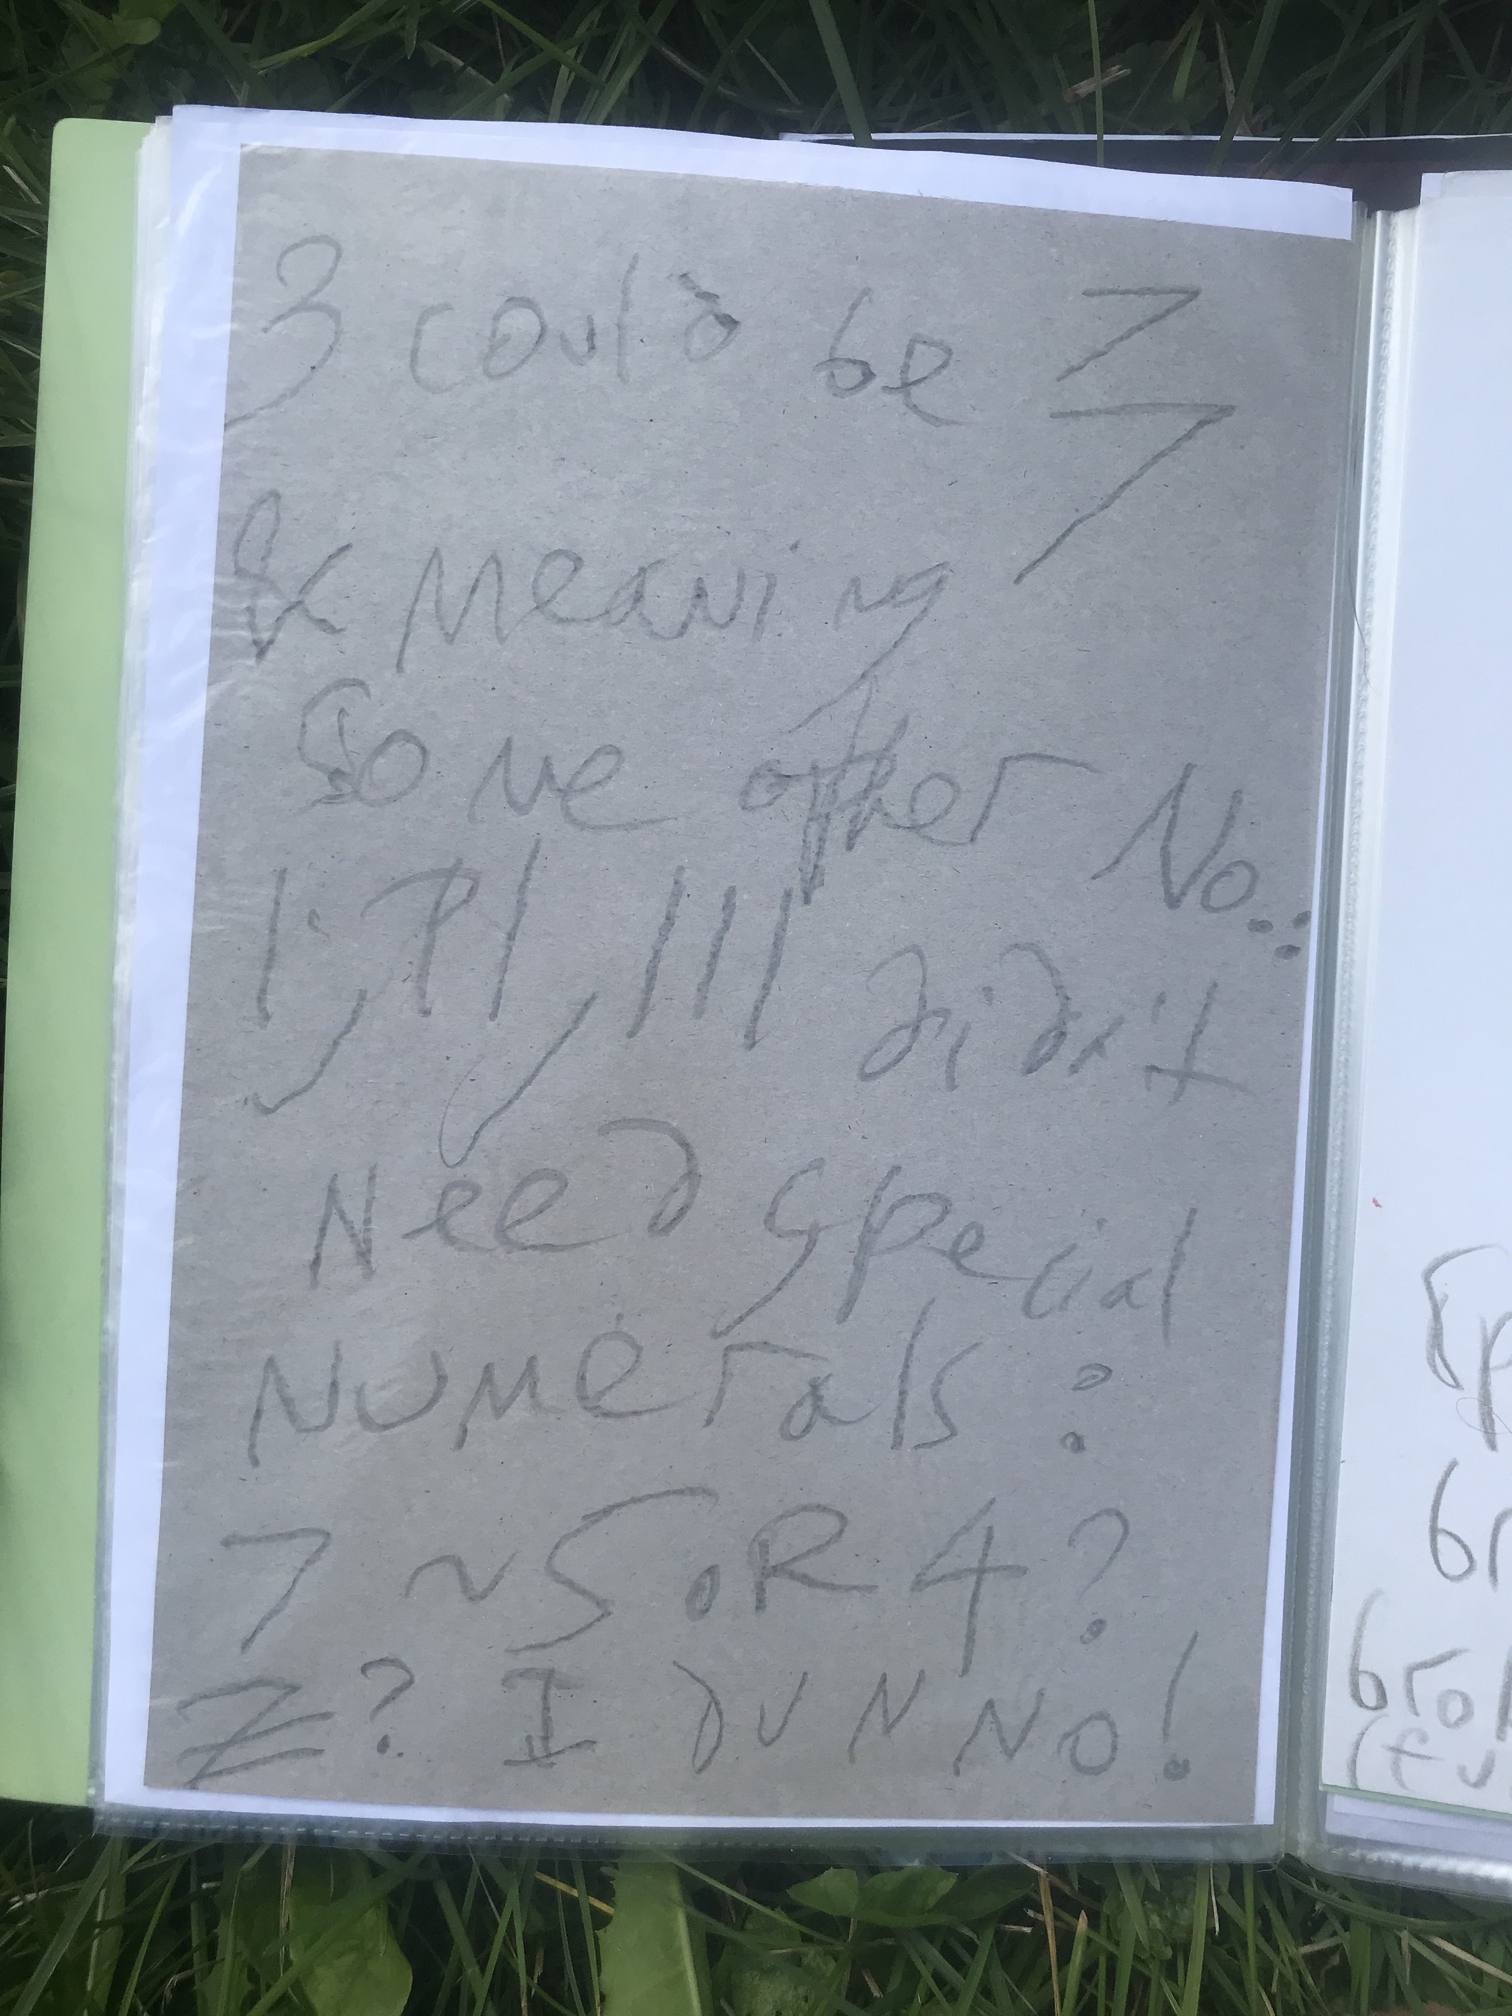 3 could be Z7
& meaning
some other No..
1, 11, 111 didn't
Need special
numerals?
7 ~ 5 OR 4?
Z? I DUNNO!
br